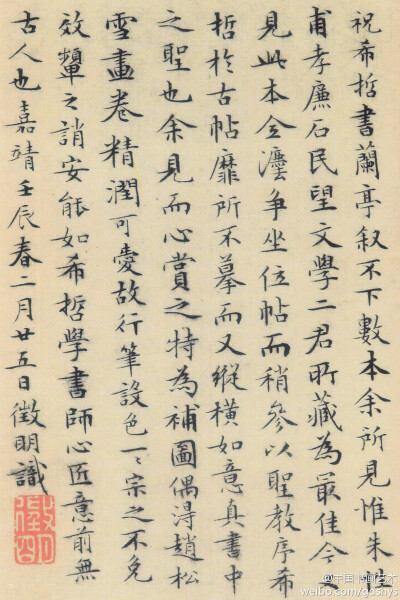 祝希哲書蘭亭叙不下數本余所見惟朱性
甫孝廉石民望文學二君所藏為最佳今又
見此本全灋爭坐位帖而稍參以聖教序希
哲於古帖靡所不摹而又縱橫如意真書中
之聖也余見而心賞之特為補圖偶淂趙松
雪畫卷精潤可愛故行筆設色一〻宗之不免
效顰之誚安能如希哲學書師心匠意前無
古人也嘉靖壬辰春二月廿五日徵明識
@中国书画艺术
weibo.com/gdshys